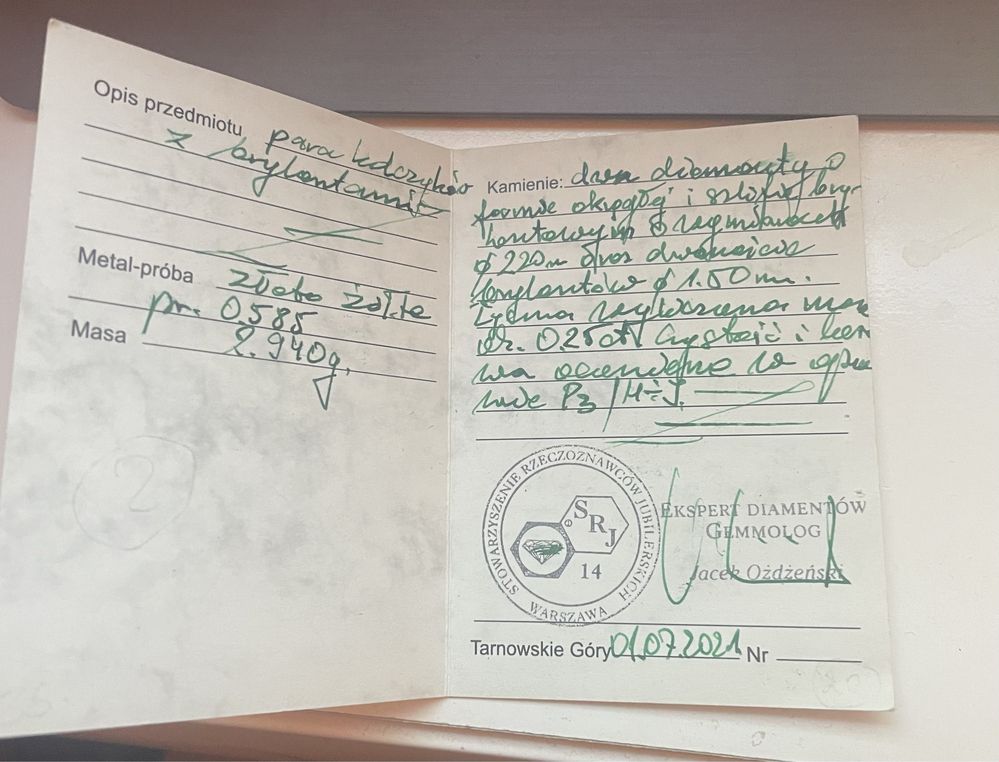 Opis przedmiotu para kolczyków
z brylantami
Metal-próba złoto żółte
pr. 0585
Masa 2.940g.
2
Kamienie: dwa diamenty o
formie okrągłej i szlifie bry-
lantowym o rozmiarach
ø 2.20m oraz
brylantów ø 1.50 m.
Łączna ma
0.25ct Czystość i bar
wa w opra
wie P3 / H÷J.
STOWARZYSZENIE RZECZOZNAWCÓW JUBILERSKICH
WARSZAWA
SRJ
14
EKSPERT DIAMENTÓW
GEMMOLOG
Jacek Ożdżeński
Tarnowskie Góry 01.07.2021 Nr